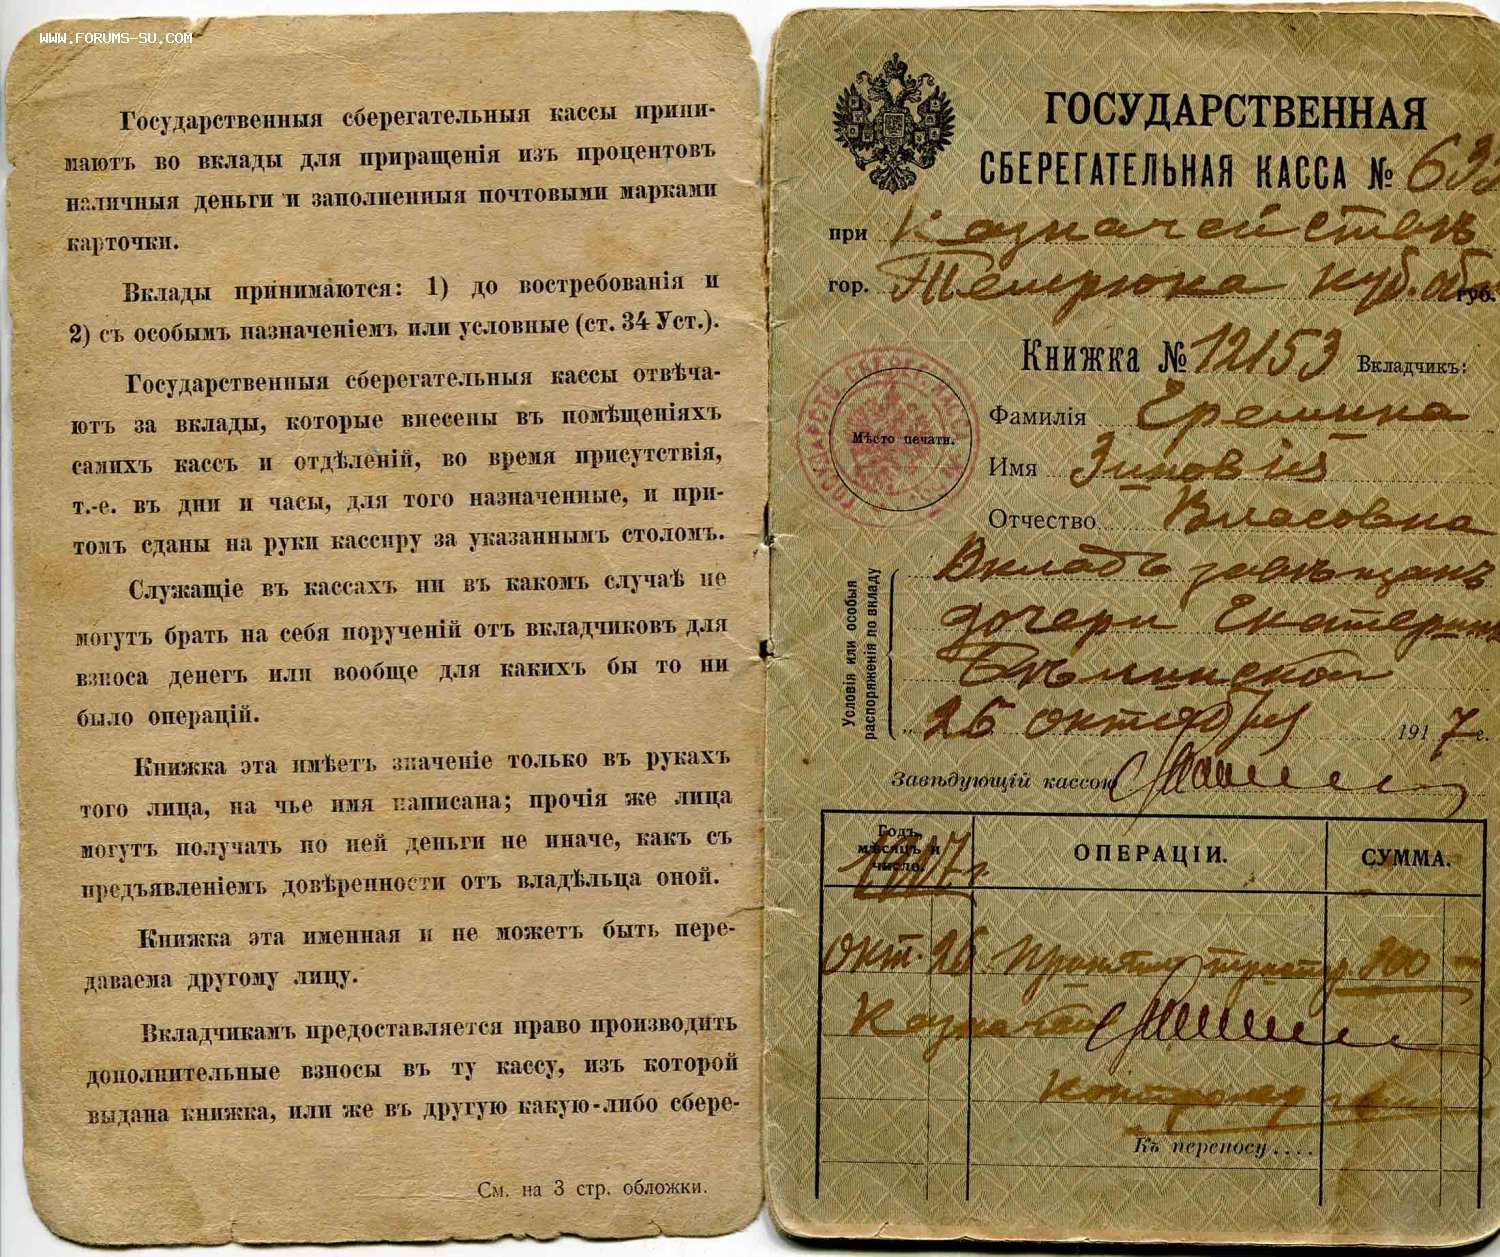 WWW.FORUMS-SU.COM
Государственныя сберегательныя кассы прини-
маютъ во вклады для приращенія изъ процентовъ
наличныя деньги и заполненныя почтовыми марками
карточки.
Вклады принимаются: 1) до востребованія и
2) съ особымъ назначеніемъ или условные (ст. 34 Уст.).
Государственныя сберегательныя кассы отвѣча-
ютъ за вклады, которые внесены въ помѣщеніяхъ
самихъ кассъ и отдѣленій, во время присутствія,
т.-е. въ дни и часы, для того назначенные, и при-
томъ сданы на руки кассиру за указаннымъ столомъ.
Служащіе въ кассахъ ни въ какомъ случаѣ не
могутъ брать на себя порученій отъ вкладчиковъ для
взноса денегъ или вообще для какихъ бы то ни
было операцій.
Книжка эта имѣетъ значеніе только въ рукахъ
того лица, на чье имя написана; прочія же лица
могутъ получать по ней деньги не иначе, какъ съ
предъявленіемъ довѣренности отъ владѣльца оной.
Книжка эта именная и не можетъ быть пере-
даваема другому лицу.
Вкладчикамъ предоставляется право производить
дополнительные взносы въ ту кассу, изъ которой
выдана книжка, или же въ другую какую-либо сбере-
См. на 3 стр. обложки.
ГОСУДАРСТВЕННАЯ
СБЕРЕГАТЕЛЬНАЯ КАССА №
при Казначействѣ
гор. Темрюка Куб. об губ.
Книжка № 12153 Вкладчикъ:
Фамилія Еремина
Мѣсто печати.
Имя Зиновія
Отчество Власовна
Условія или особыя
распоряженія по вкладу
Вкладъ завѣщанъ
дочери Екатеринѣ
26 октября 1917 г.
Завѣдующій кассою
Годъ, мѣсяцъ и число. ОПЕРАЦІИ. СУММА.
1917 г.
Окт. 26 Принято триста р 300
Казначей
Контролер
Къ переносу ....